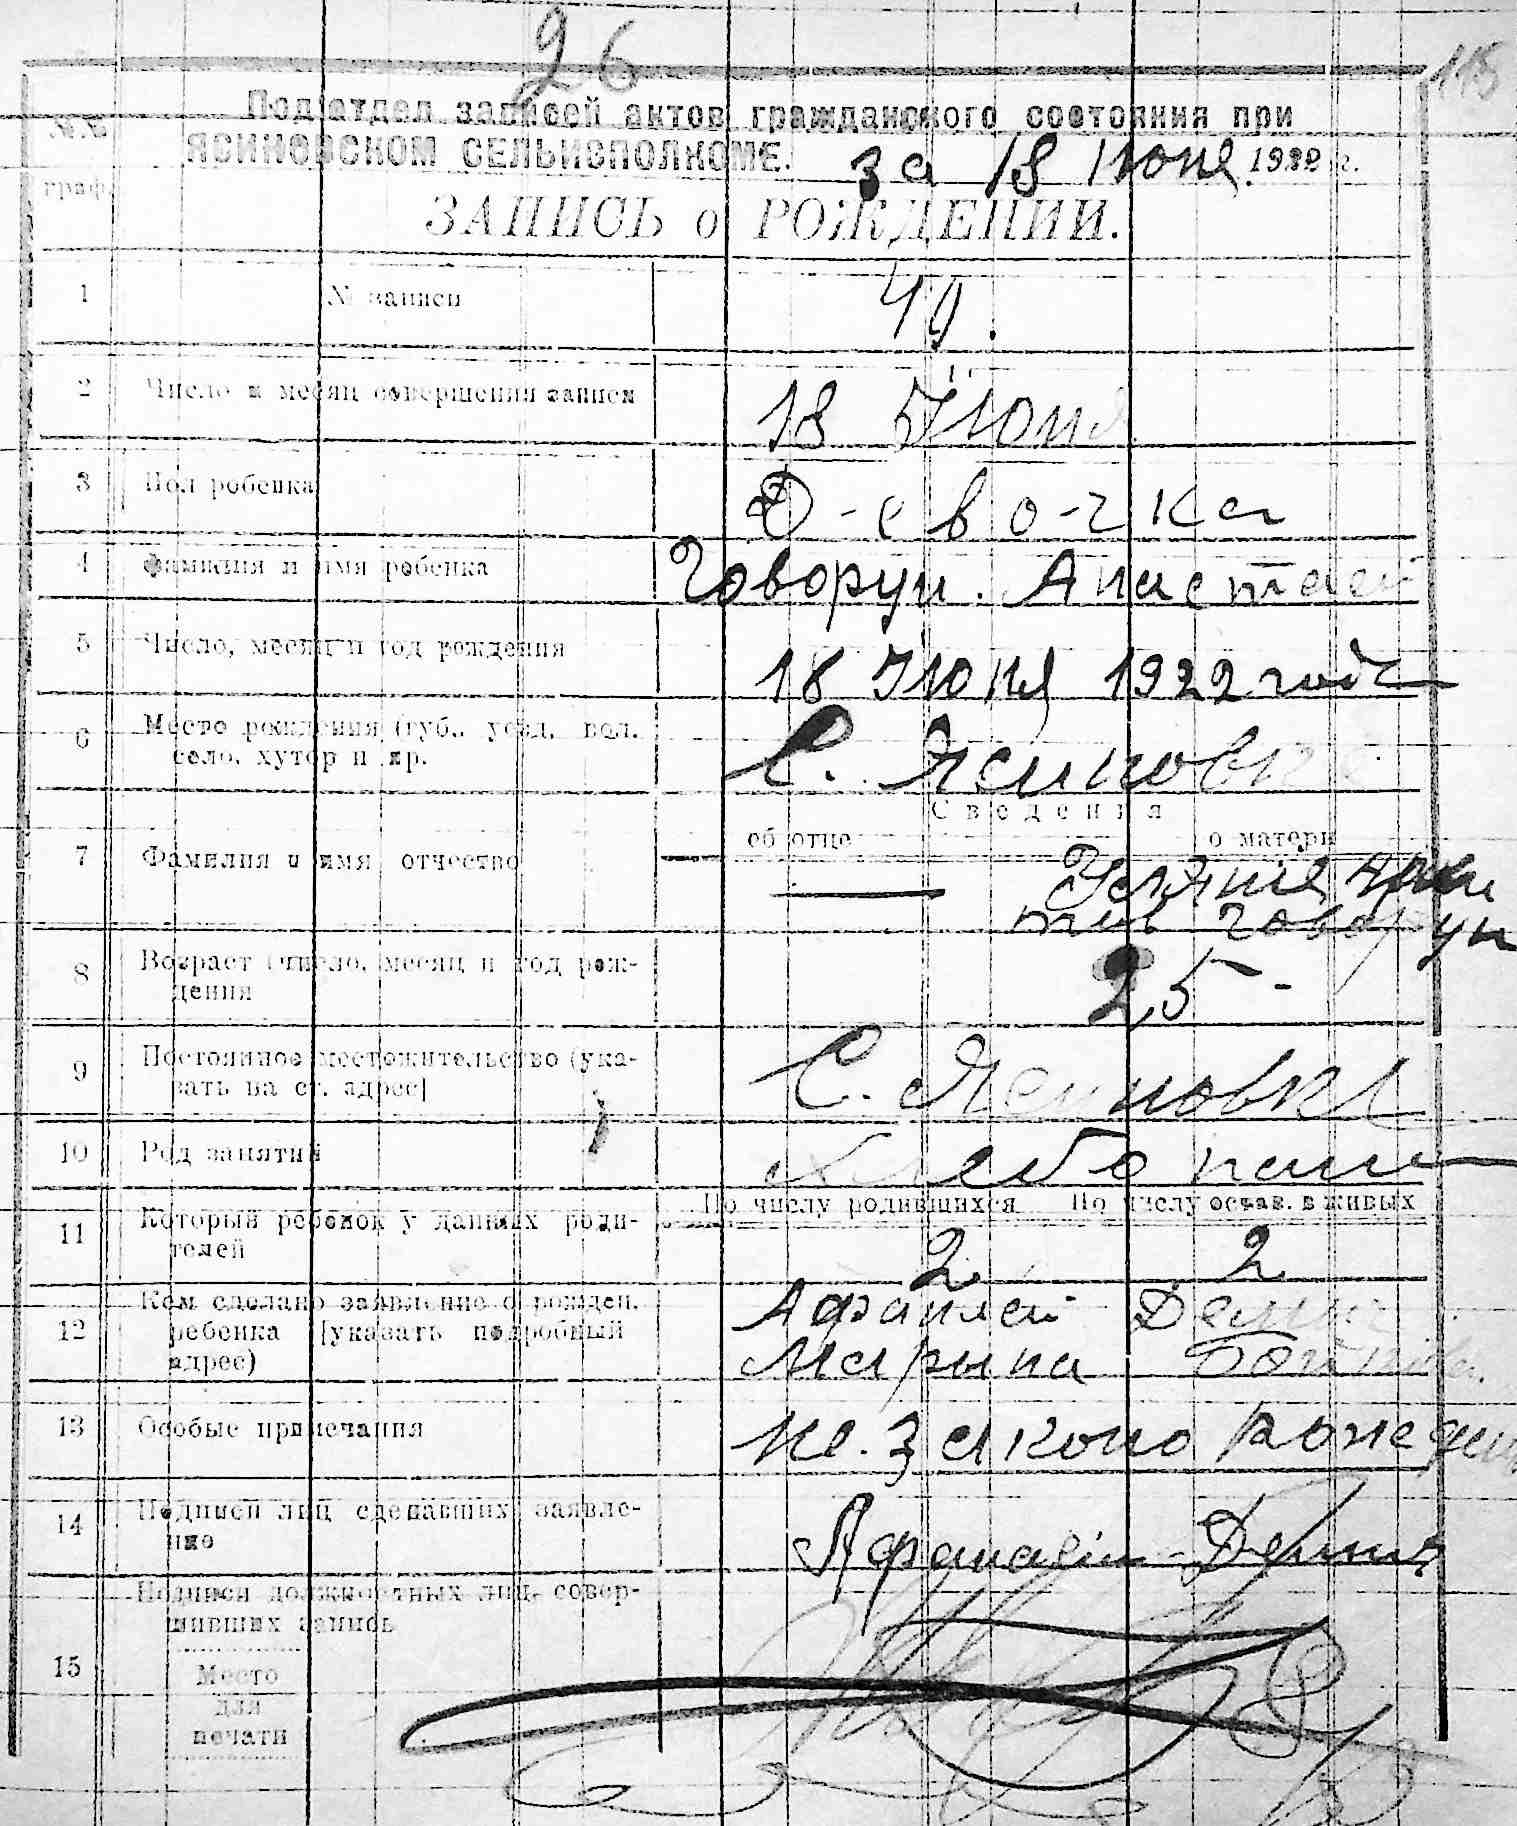 26
115
Подотдел записей актов гражданского состояния при
ЯСИНОВСКОМ СЕЛЬИСПОЛКОМЕ. за 18 Июня 1922 г.
№№ граф.
ЗАПИСЬ о РОЖДЕНИИ.
1 № записи 49.
2 Число и месяц совершения записи 18 Июня
3 Пол ребенка Девочка
4 Фамилия и имя ребенка Говорун. Анастасй
5 Число, месяц и год рождения 18 Июня 1922 года
6 Место рождения (губ., уезд, вол.
село, хутор и др. С. Ясиновка
Сведения
об отце о матери
7 Фамилия и имя отчество — Уляния
Говорун
8 Возраст (число, месяц и год рож-
дения 25-
9 Постоянное местожительство (ука-
зать на ст. адрес] С. Ясиновка
10 Род занятий Хлебопаш
По числу родившихся По числу остав. в живых
11 Который ребенок у данных роди-
телей 2 2
12 Кем сделано заявление о рожден.
ребенка [указать подробный
адрес) Афанасй
Марына
13 Особые примечания не.законо рожеден
14 Подписи лиц сделавших заявле-
ние Афанасiи
15 Подписи должностных лиц, совер-
шивших запись
Место
для
печати